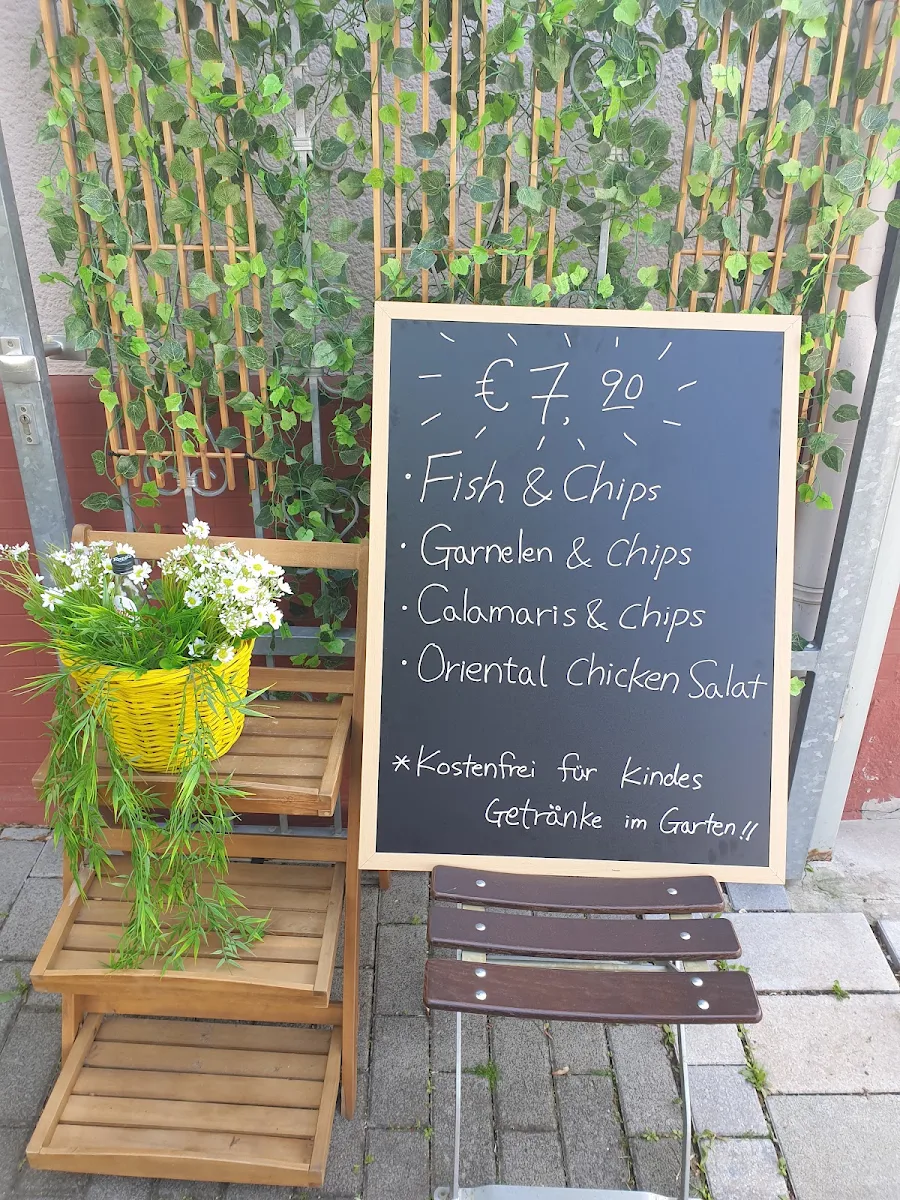 € 7, 90
· Fish & Chips
· Garnelen & Chips
· Calamaris & Chips
· Oriental Chicken Salat
* Kostenfrei für Kindes
Getränke im Garten!!